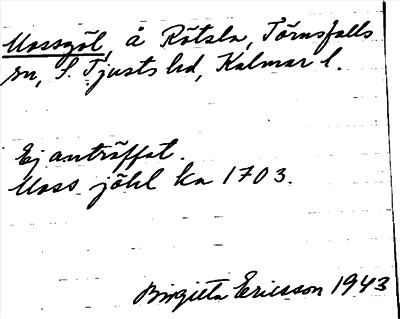 Mossgöl, å Rötsla, Törnsfalls
sn, S. Tjusts hd, Kalmar l.
Ej anträffat.
Moss jöhl ka 1703.
Birgitta Ericsson 1943